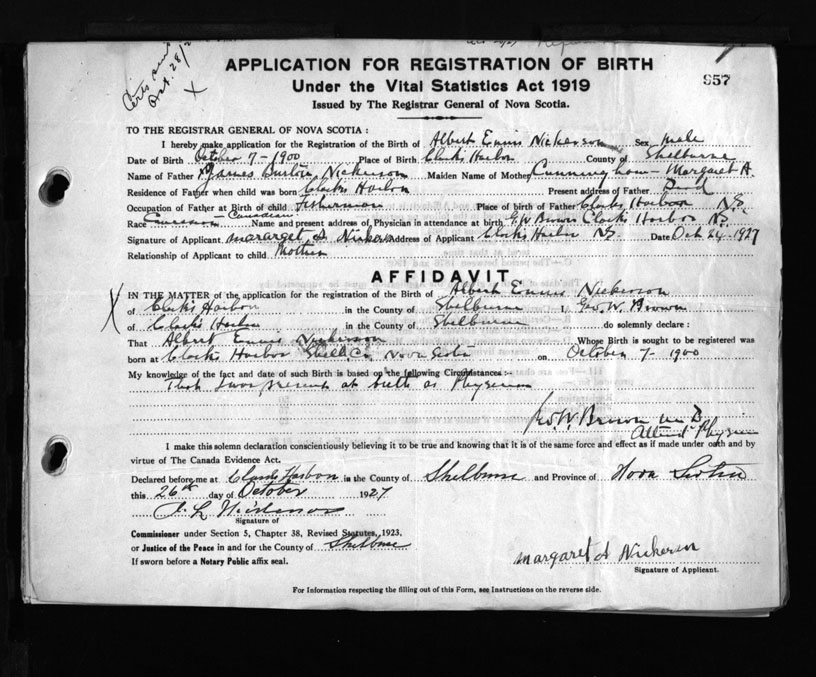 Certs
Oct. 28/
X
APPLICATION FOR REGISTRATION OF BIRTH
957
Under the Vital Statistics Act 1919
Issued by The Registrar General of Nova Scotia.
TO THE REGISTRAR GENERAL OF NOVA SCOTIA :
I hereby make application for the Registration of the Birth of Albert Ennis Nickerson Sex male
Date of Birth October 7 - 1900 Place of Birth Clarks Harbor County of Shelburne
Name of Father James Burton Nickerson Maiden Name of Mother Cunningham - Margaret A.
Residence of Father when child was born Clarks Harbor Present address of Father Dead
Occupation of Father at Birth of child fisherman Place of birth of Father Clarks Harbor N.S.
Race - Canadian Name and present address of Physician in attendance at birth G.W. Brown Clarks Harbor N.S.
Signature of Applicant Margaret A Nickerson Address of Applicant Clarks Harbor N.S. Date Oct 24 - 1927
Relationship of Applicant to child Mother
AFFIDAVIT
IN THE MATTER of the application for the registration of the Birth of Albert Ennis Nickerson
X
of Clarks Harbor in the County of Shelburne I, Geo. W. Brown
of Clarks Harbor in the County of Shelburne do solemnly declare :
That Albert Ennis Nickerson Whose Birth is sought to be registered was
born at Clarks Harbor Shelb. Co. Nova Scotia on October 7 - 1900
My knowledge of the fact and date of such Birth is based on the following Circumstances :-
That I was present at birth as Physician
Geo. W. Brown M.D.
Attend Physician
I make this solemn declaration conscientiously believing it to be true and knowing that it is of the same force and effect as if made under oath and by
virtue of The Canada Evidence Act.
Declared before me at Clarks Harbor in the County of Shelburne and Province of Nova Scotia
this 26th day of October 1927
Nickerson
Signature of
Commissioner under Section 5, Chapter 38, Revised Statutes, 1923,
or Justice of the Peace in and for the County of Shelburne
If sworn before a Notary Public affix seal.
Margaret A Nickerson
Signature of Applicant.
For Information respecting the filling out of this Form, see Instructions on the reverse side.